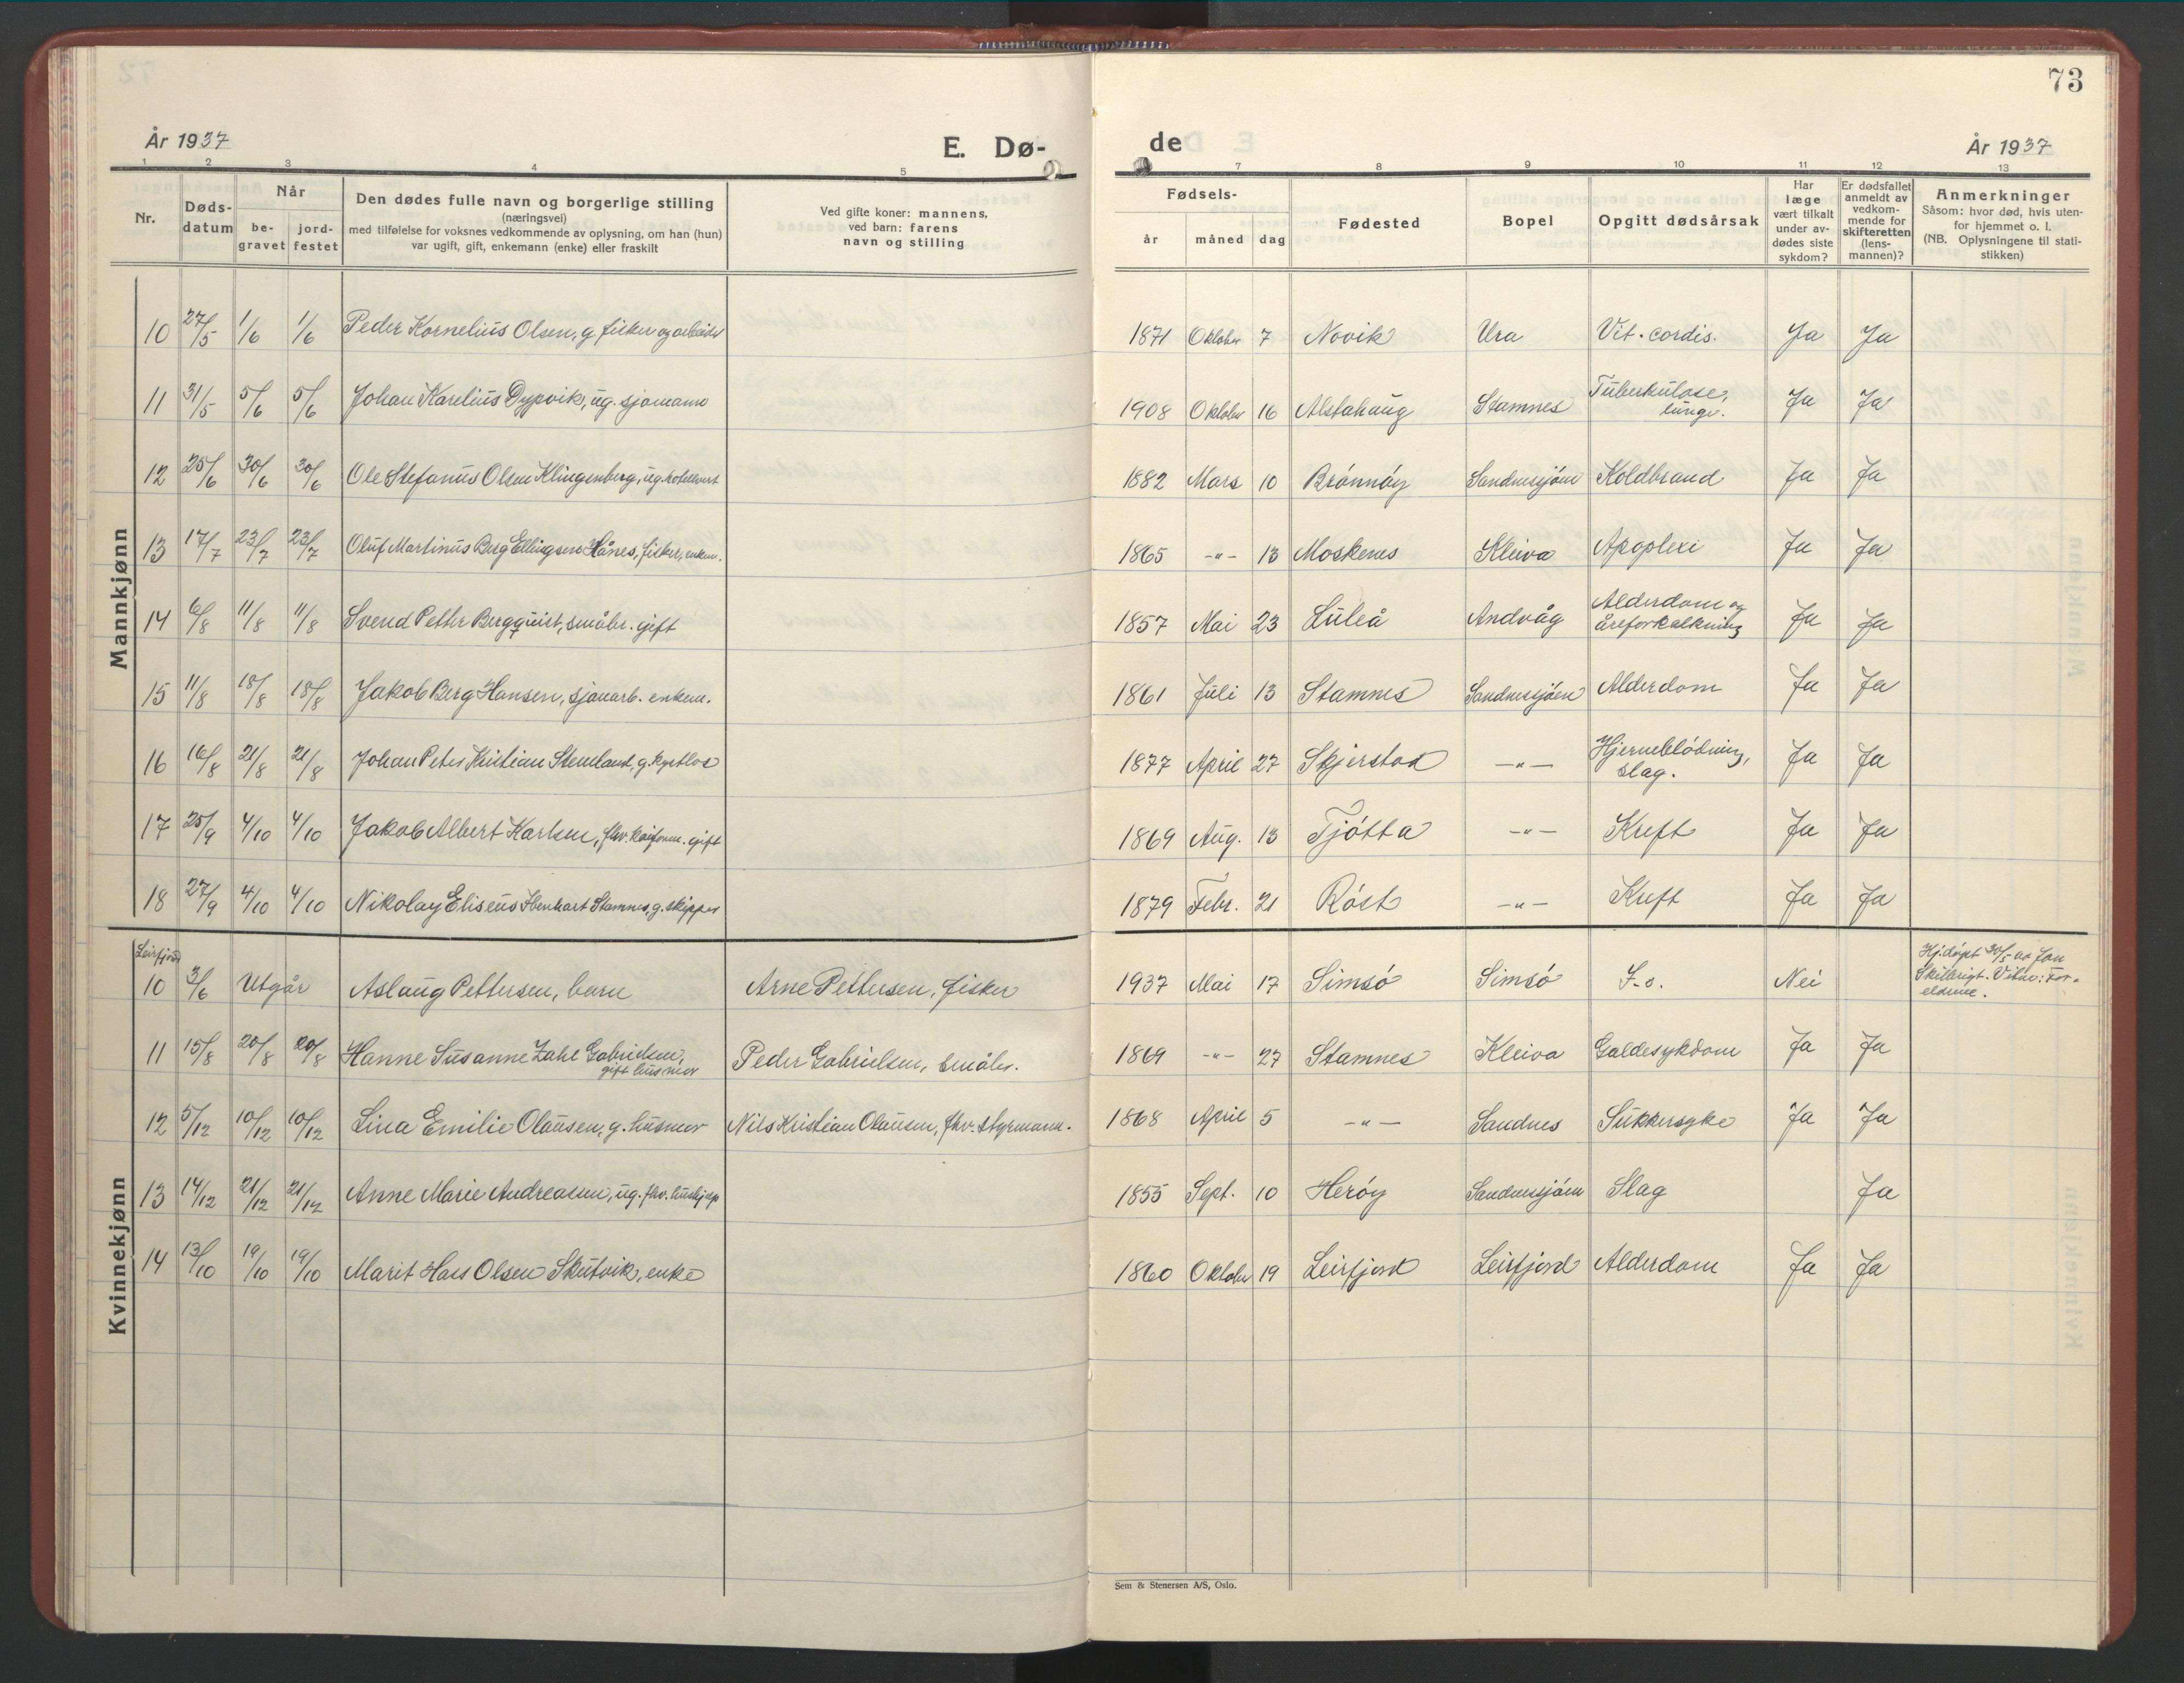 73
År 1937
E. Dø-
de
År 1937
1 2 3 4 5 7 8 9 10 11 12 13
Nr.
Døds-
datum
Når
be-
gravet
jord-
festet
Den dødes fulle navn og borgerlige stilling
(næringsvei)
med tilføielse for voksnes vedkommende av oplysning, om han (hun)
var ugift, gift, enkemann (enke) eller fraskilt
Ved gifte koner: mannens,
ved barn: farens
navn og stilling
Fødsels-
år måned dag
Fødested
Bopel
Opgitt dødsårsak
Har
læge
vært tilkalt
under av-
dødes siste
sykdom?
Er dødsfallet
anmeldt av
vedkom-
mende for
skifteretten
(lens-
mannen)?
Anmerkninger
Såsom: hvor død, hvis uten-
for hjemmet o. l.
(NB. Oplysningene til stati-
stikken)
Mannkjønn
10 27/5 1/6 1/6 Peder Kornelius Olsen, g. fisker og arbeider 1871 Oktober 7 Novik Ura Vit. cordis. Ja Ja
11 31/5 5/6 5/6 Johan Karelius Dypvik, ug. sjømann 1908 Oktober 16 Alstahaug Stamnes Tuberkulose, lunge. Ja Ja
12 25/6 30/6 30/6 Ole Stefanus Olsen Klingenberg, ug. hotellvert 1882 Mars 10 Brønnøy Sandnessjøen Koldbrand Ja Ja
13 17/7 23/7 23/7 Oluf Martinus Berg Ellingsen Hånes, fisker, enkem. 1865 -"- 13 Moskenes Kleiva Apoplexi Ja Ja
14 6/8 11/8 11/8 Svend Petter Bergquist, småbr. gift 1857 Mai 23 Luleå Andvåg Alderdom og åreforkalkning Ja Ja
15 11/8 18/8 18/8 Jakob Berg Hansen, sjauarb. enkem. 1861 Juli 13 Stamnes Sandnessjøen Alderdom Ja Ja
16 16/8 21/8 21/8 Johan Peter Kristian Stemland, g. kystlos 1877 April 27 Skjerstad -"- Hjerneblødning, slag. Ja Ja
17 25/9 4/10 4/10 Jakob Albert Karlsen, fhv. kaiform. gift 1869 Aug. 13 Tjøtta -"- Kreft Ja Ja
18 27/9 4/10 4/10 Nikolay Eliseus Stamnes, g. skipper 1879 Febr. 21 Røst -"- Kreft Ja Ja
Kvinnekjønn
Leirfjord
10 3/6 Utgår Aslaug Pettersen, barn Arne Pettersen, fisker 1937 Mai 17 Simsø Simsø F.s. Nei Hj.døpt 30/5 av Jon
Skilbrigt. Vitne: For-
eldrene.
11 15/8 20/8 20/8 Hanne Susanne Zahl Gabrielsen, gift husmor Peder Gabrielsen, småbr. 1869 -"- 27 Stamnes Kleiva Galdesykdom Ja Ja
12 5/12 10/12 10/12 Lina Emilie Olausen, g. husmor Nils Kristian Olausen, fhv. styrmann. 1868 April 5 -"- Sandnes Sukkersyke Ja Ja
13 14/12 21/12 21/12 Anne Marie Andreasen, ug. fhv. hushjelp 1855 Sept. 10 Herøy Sandnessjøen Slag Ja
14 13/10 19/10 19/10 Marit Hans Olsen Skutvik, enke 1860 Oktober 19 Leirfjord Leirfjord Alderdom Ja Ja
Sem & Stenersen A/S, Oslo.